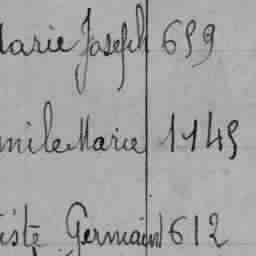 Marie Joseph 659
mile Marie 1145
iste Germain 612